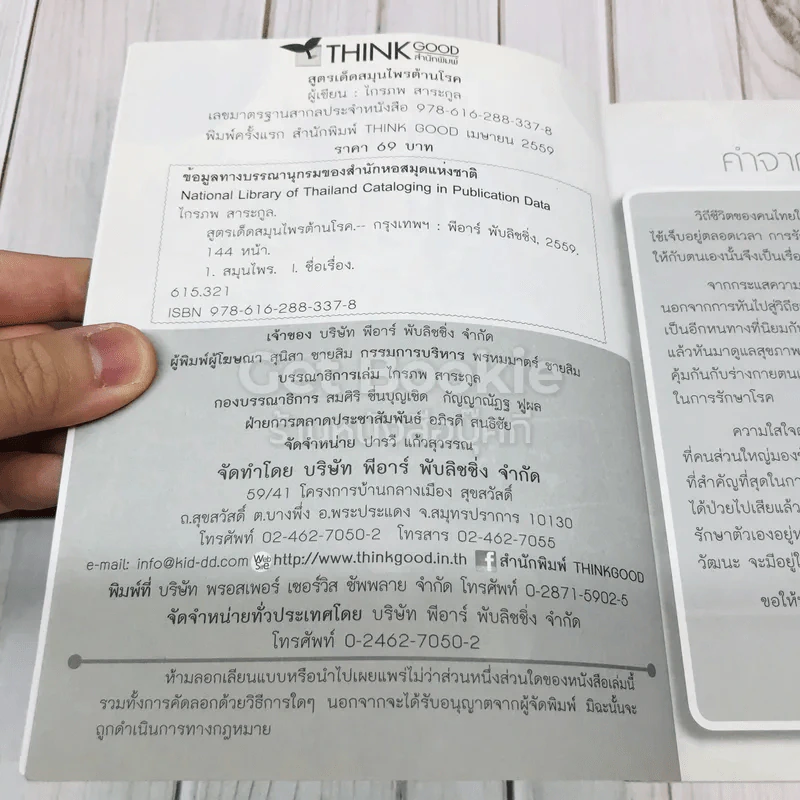 THINK GOOD สำนักพิมพ์
สูตรเด็ดสมุนไพรต้านโรค
ผู้เขียน : ไกรภพ สาระกูล
เลขมาตรฐานสากลประจำหนังสือ 978-616-288-337-8
พิมพ์ครั้งแรก สำนักพิมพ์ THINK GOOD เมษายน 2559
ราคา 69 บาท
ข้อมูลทางบรรณานุกรมของสำนักหอสมุดแห่งชาติ
National Library of Thailand Cataloging in Publication Data
ไกรภพ สาระกูล.
สูตรเด็ดสมุนไพรต้านโรค.-- กรุงเทพฯ : พีอาร์ พับลิชชิ่ง, 2559.
144 หน้า.
1. สมุนไพร. I. ชื่อเรื่อง.
615.321
ISBN 978-616-288-337-8
เจ้าของ บริษัท พีอาร์ พับลิชชิ่ง จำกัด
ผู้พิมพ์ผู้โฆษณา สุนิสา ชายสิม กรรมการบริหาร พรหมมาตร์ ชายสิม
บรรณาธิการเล่ม ไกรภพ สาระกูล
กองบรรณาธิการ สมศิริ ชื่นบุญเชิด กัญญาณัฏฐ ฟูผล
ฝ่ายการตลาดประชาสัมพันธ์ อภิรดี สนธิชัย
จัดจำหน่าย ปารวี แก้วสุวรรณ
จัดทำโดย บริษัท พีอาร์ พับลิชชิ่ง จำกัด
59/41 โครงการบ้านกลางเมือง สุขสวัสดิ์
ถ.สุขสวัสดิ์ ต.บางพึ่ง อ.พระประแดง จ.สมุทรปราการ 10130
โทรศัพท์ 02-462-7050-2 โทรสาร 02-462-7055
e-mail: info@kid-dd.com http://www.thinkgood.in.th สำนักพิมพ์ THINKGOOD
พิมพ์ที่ บริษัท พรอสเพอร์ เซอร์วิส ซัพพลาย จำกัด โทรศัพท์ 0-2871-5902-5
จัดจำหน่ายทั่วประเทศโดย บริษัท พีอาร์ พับลิชชิ่ง จำกัด
โทรศัพท์ 0-2462-7050-2
ห้ามลอกเลียนแบบหรือนำไปเผยแพร่ไม่ว่าส่วนหนึ่งส่วนใดของหนังสือเล่มนี้
รวมทั้งการคัดลอกด้วยวิธีการใดๆ นอกจากจะได้รับอนุญาตจากผู้จัดพิมพ์ มิฉะนั้นจะ
ถูกดำเนินการทางกฎหมาย
คำจาก
วิถีชีวิตของคนไทยใ
ไข้เจ็บอยู่ตลอดเวลา การรั
ให้กับตนเองนั้นจึงเป็นเรื่อ
จากกระแสความ
นอกจากการหันไปสู่วิถีธร
เป็นอีกหนทางที่นิยมกัน
แล้วหันมาดูแลสุขภาพ
คุ้มกันกับร่างกายตนเ
ในการรักษาโรค
ความใส่ใจ
ที่คนส่วนใหญ่มองข้
ที่สำคัญที่สุดในกา
ได้ป่วยไปเสียแล้ว
รักษาตัวเองอยู่
วัฒนะ จะมีอยู่ใ
ขอให้
Get Bookie